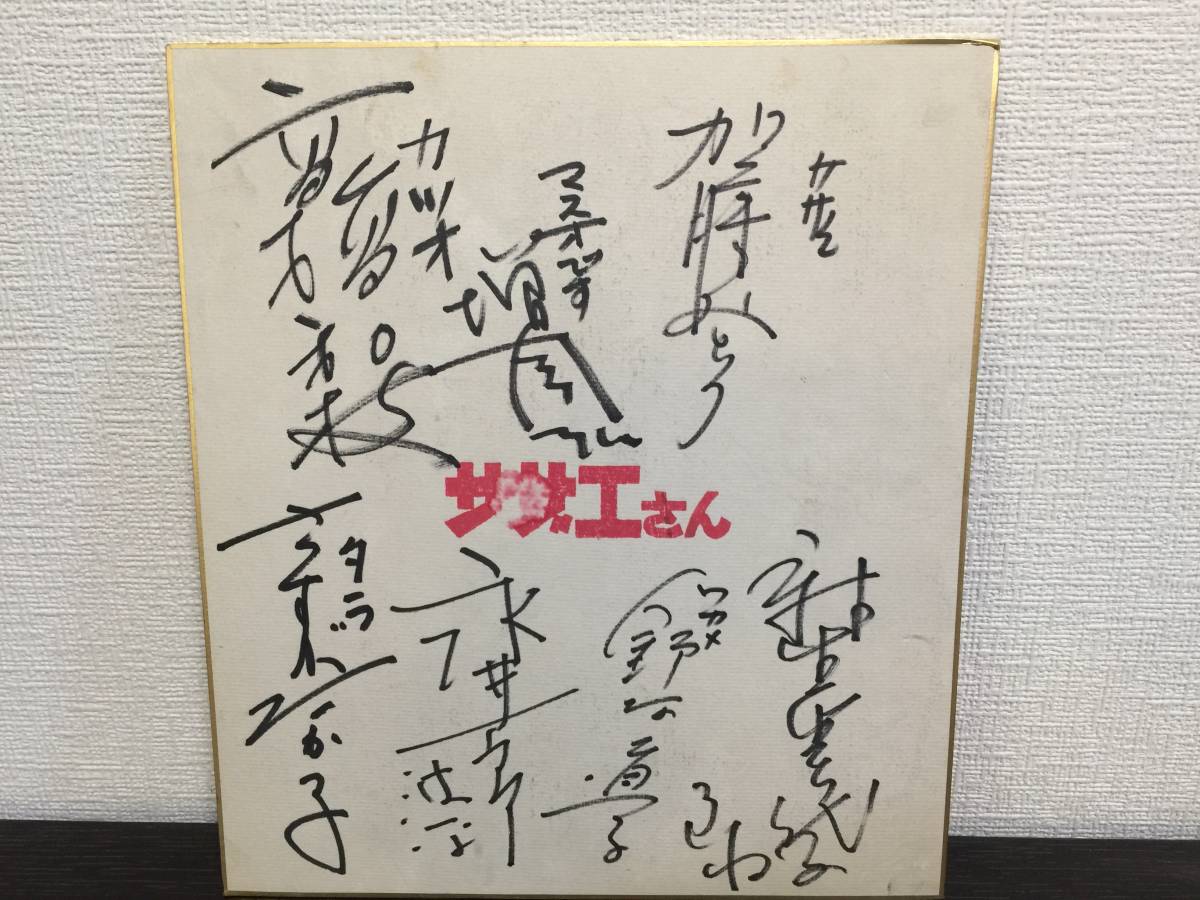 サザエ
加藤みどり
マスオです
増岡
カツオ
高橋和枝
サザエさん
麻生美代子
ふね
ワカメ
野村道子
永井一郎
波平
タラ
貴家堂子